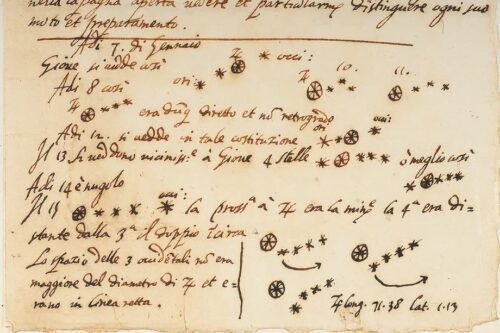 nella campagna aperta vedere et particolarme distinguere ogni suo
moto et preparamento.
Adi 7. di Gennaio
Gione si vedde così ♃ occi:
Adi 8 così ori: ♃ 10. 11.
♃ era dūq diretto et nō retrogrado
Adi 12. si vedde in tale costituzione ori occi:
Il 13 si veddono viciniss.e à Gione 4 stelle ò meglio così
Adi 14 è nugolo
Il 15 occi: la pross.a à ♃ era la min.e la 4.a era di-
stante dalla 3.a il doppio circa
Lo spazio delle 3 occidētali nō era
maggiore del diametro di ♃ et e-
rano in linea retta.
♃ long. 71.38 lat. 1.13